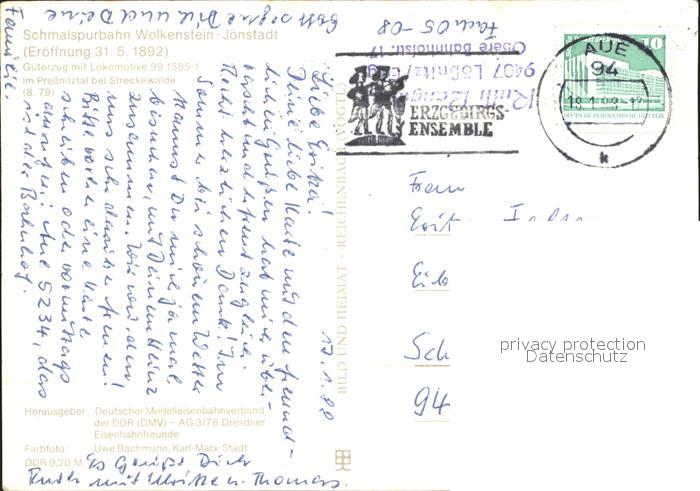 Schmalspurbahn Wolkenstein - Jönstadt
(Eröffnung 31. 5. 1892)
Güterzug mit Lokomotive 99 1585-1
im Preßnitztal bei Streckewalde
(8. 79)
17.1.88
Liebe
Deine liebe Karte mit den freund-
lichen Grüßen hat mich über-
rascht und erfreut zugleich.
Hab herzlichen Dank! Im
Sommer bei schönem Wetter
kannst Du mich ja mal
besuchen, mit Deinem Heinz
zusammen. Wir würden
uns sehr darüber freuen!
Bitte vorher eine Karte
schreiben oder vormittags
anrufen: Aue 5234, das
ist der Bahnhof.
Gott segne Dich und Deine
Familie.
Es grüßt Dich
Ruth mit u. Thomas.
Herausgeber: Deutscher Modelleisenbahnverband
der DDR (DMV) – AG 3/76 Dresdner
Eisenbahnfreunde
Farbfoto: Uwe Bachmann, Karl-Marx-Stadt
DDR 0,20 M
BILD UND HEIMAT · REICHENBACH (VOGTL)
Ruth
9407 Lößnitz / Erzg.
Obere Bahnhofstr. 17
ERZGEBIRGS-
ENSEMBLE
AUE
94
18.1.88-17
k
10
DEUTSCHE DEMOKRATISCHE REPUBLIK
Frau
Sch
94
privacy protection
Datenschutz